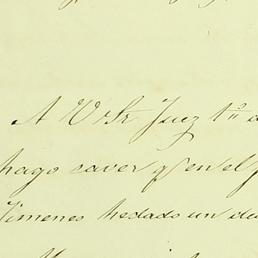 A V. Sr Juez 1º
hago caver q.e en el
Jimenes hedado un